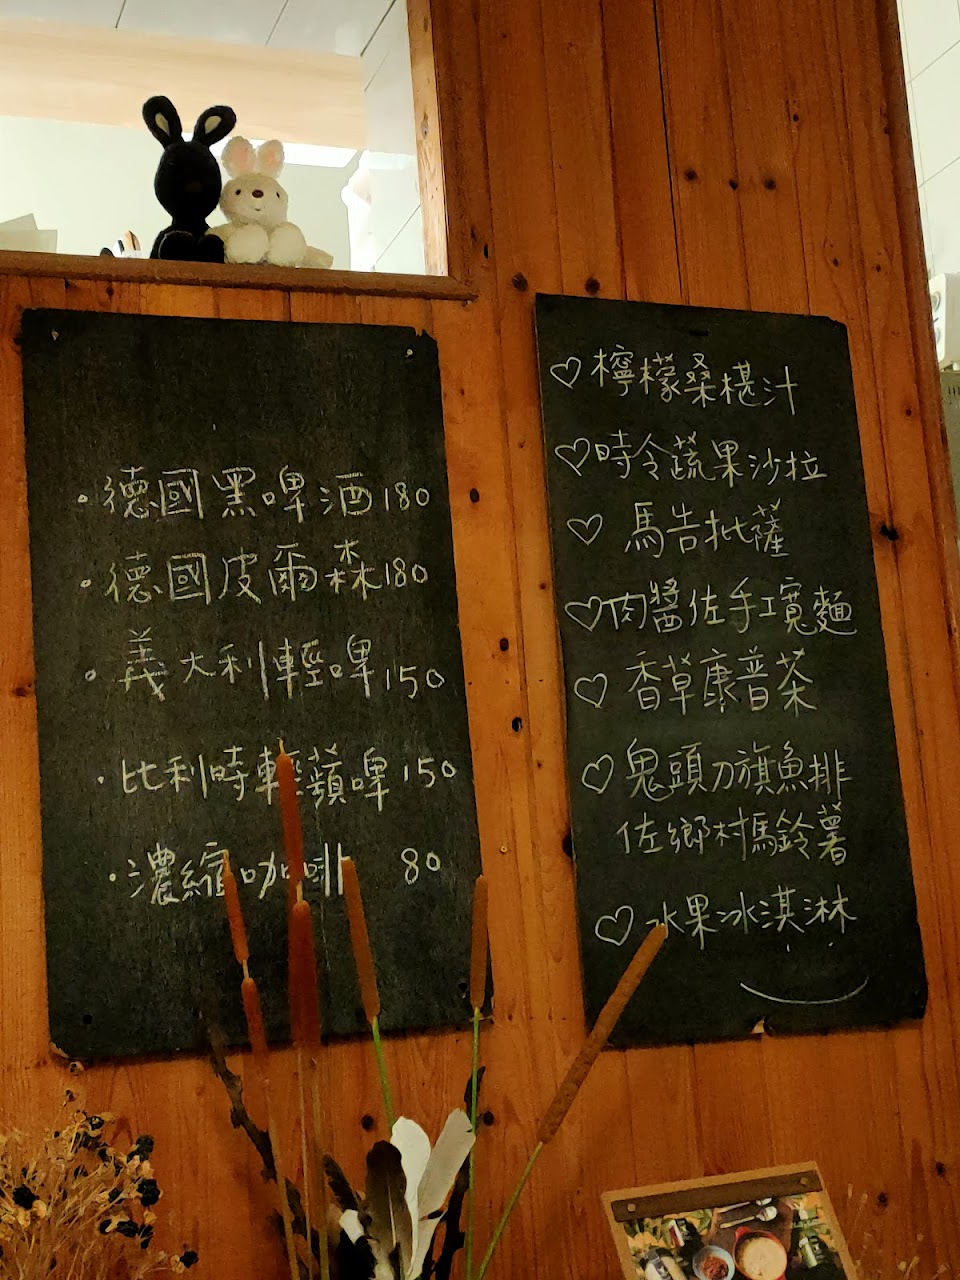 德國黑啤酒180
德國皮爾森180
義大利輕啤150
比利時輕蘋啤150
濃縮咖啡 80
♡檸檬桑椹汁
♡時令蔬果沙拉
♡馬告批薩
♡肉醬佐手工寬麵
♡香草康普茶
♡鬼頭刀旗魚排
佐鄉村馬鈴薯
♡水果冰淇淋